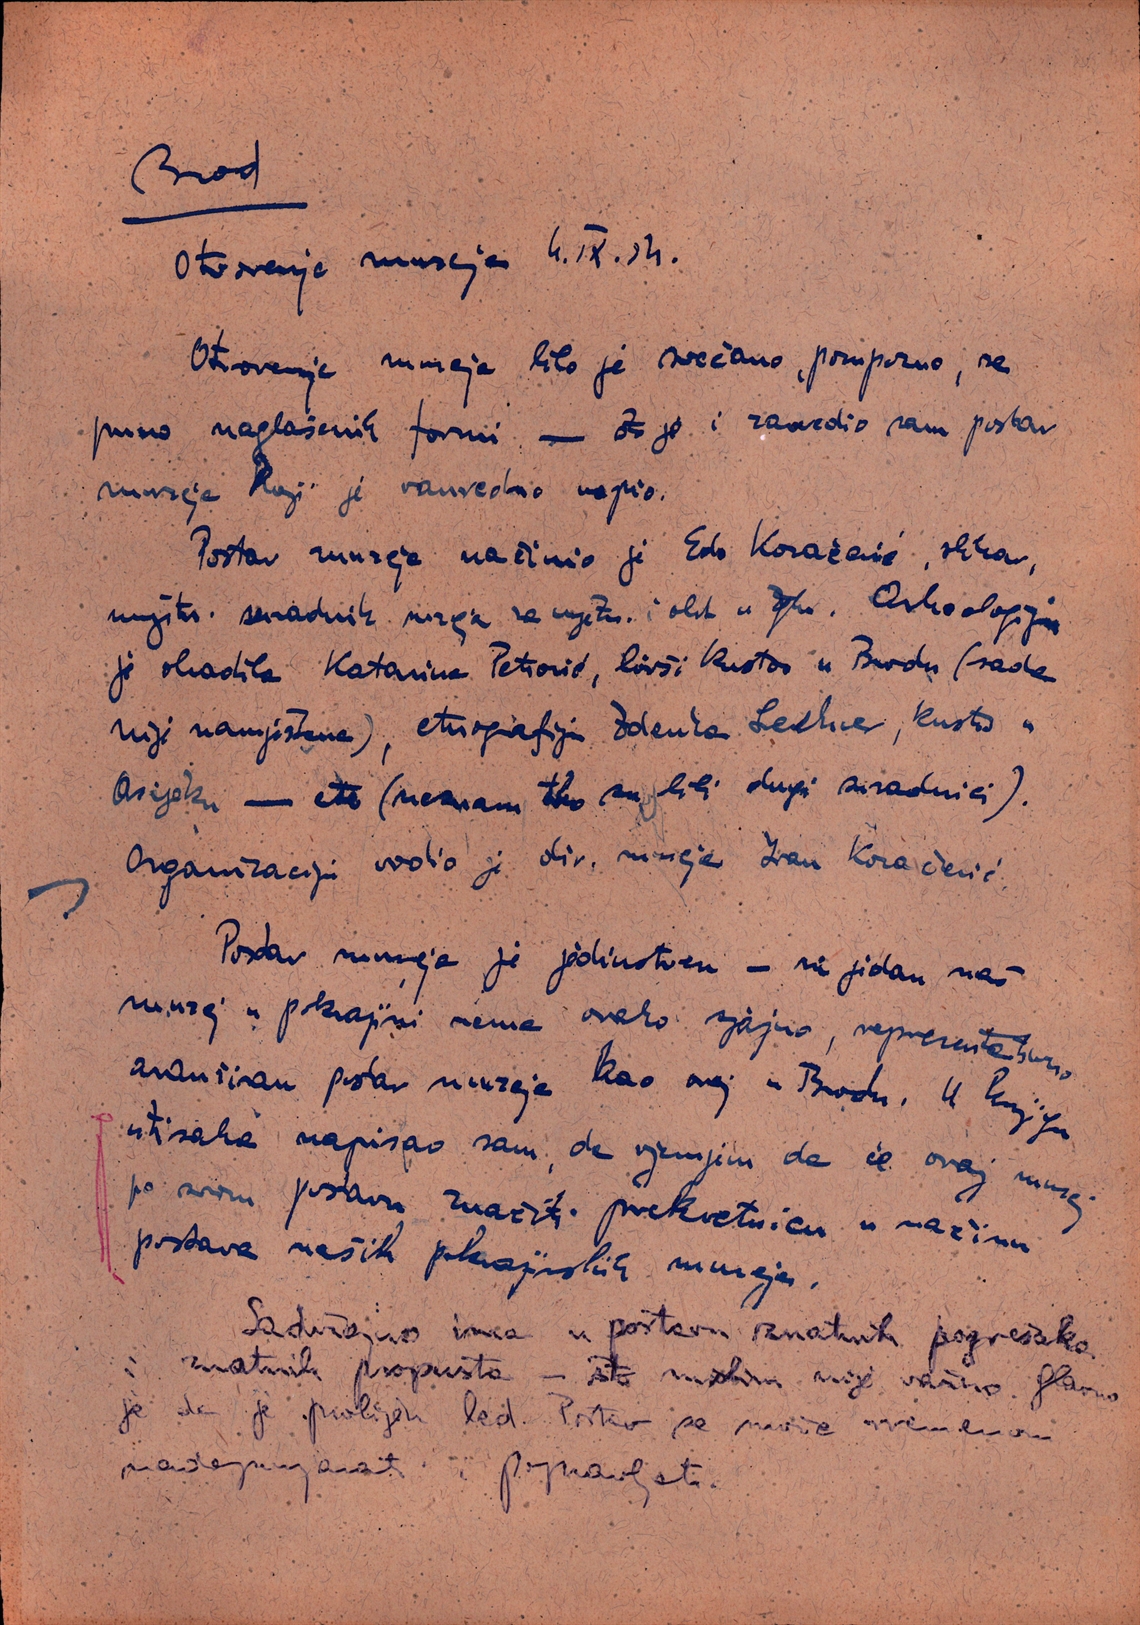 Brod
Otvorenje muzeja 4.IX.54.
Otvorenje muzeja bilo je svečano, pompozno, sa
puno naglašenih formi — što je i zavredio sam postav
muzeja koji je vanredno uspio.
Postav muzeja načinio je Edo Kovačević, slikar,
umjetn. suradnik muzeja za umjetn. i obrt u Zgbu. Arheologiju
je obradila Katarina Petrović, bivši kustos u Brodu (sada
nije namještena), etnografiju Zdenka Lechner, kustos u
Osijeku — (neznam tko su bili drugi suradnici).
Organizaciju vodio je dir. muzeja Ivan Kovačević.
Postav muzeja je jedinstven – ni jedan naš
muzej u pokrajini nema ovako sjajno, reprezentativno
aranžiran postav muzeja kao ovaj u Brodu. U knjigu
utisaka napisao sam, da vjerujem da će ovaj muzej
po svom postavu značiti prekretnicu u načinu
postava naših pokrajinskih muzeja.
Sadržajno ima u postavu znatnih pogrešaka
i znatnih propusta – što mislim nije važno. Glavno
je da je probijen led. Postav se može vremenom
nadopunjavati i popravljati.